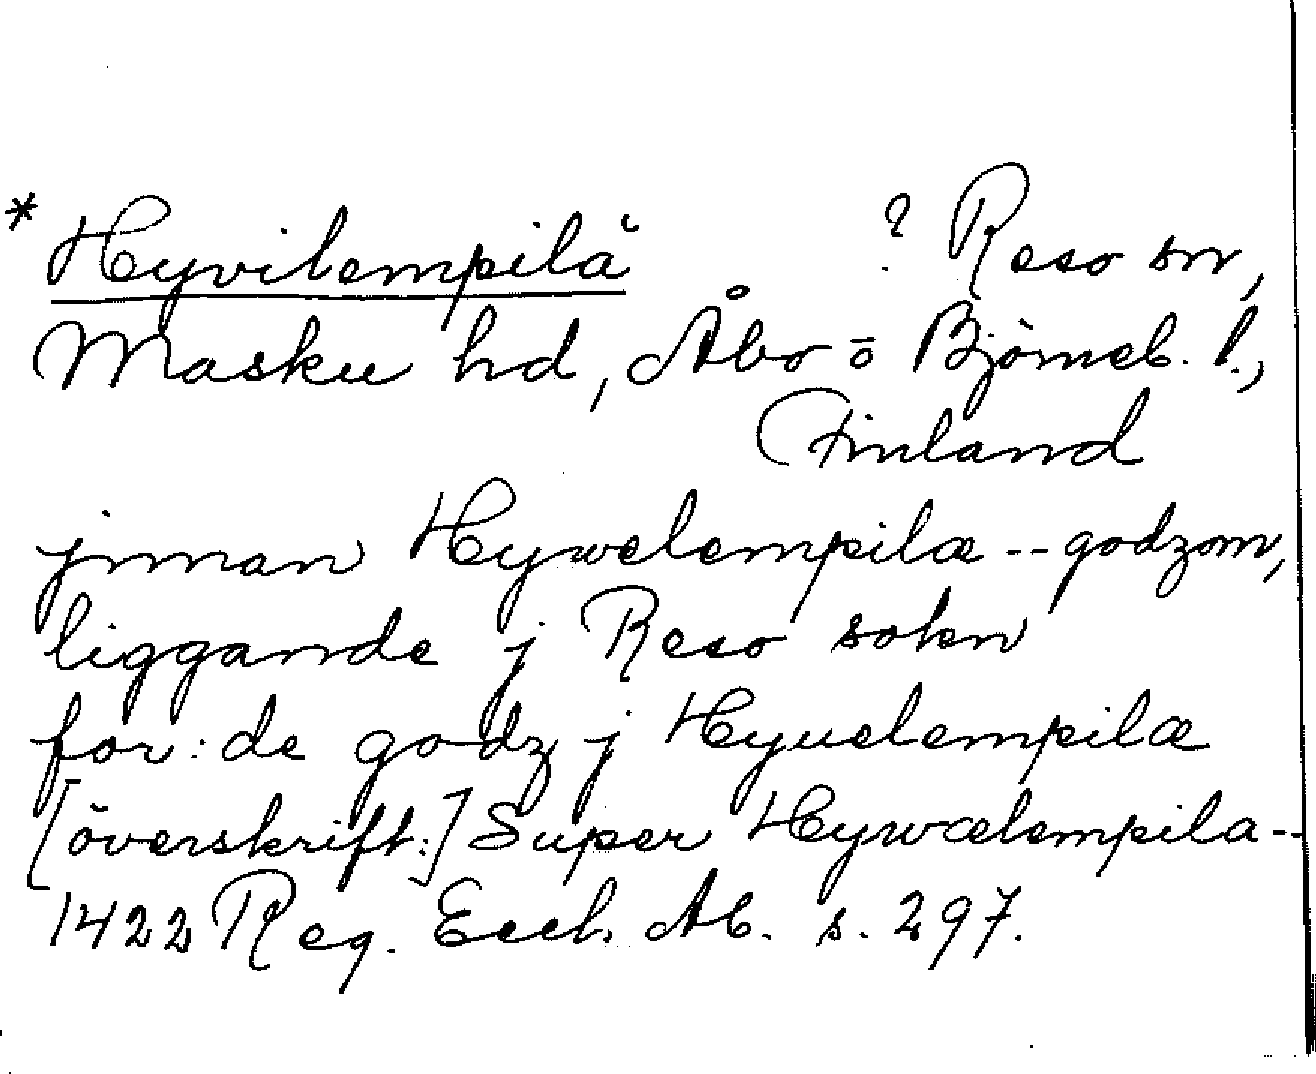 * Hyvilempilä ? Reso sn,
Masku hd, Åbo o Björneb. l.,
Finland
jnnan Hywelempilæ -- godzom,
liggande j Reso sokn
for: de godz j Hyuelempilæ
[överskrift:] Super Hywælempila --
1422 Reg. Eccl. Ab. s. 297.